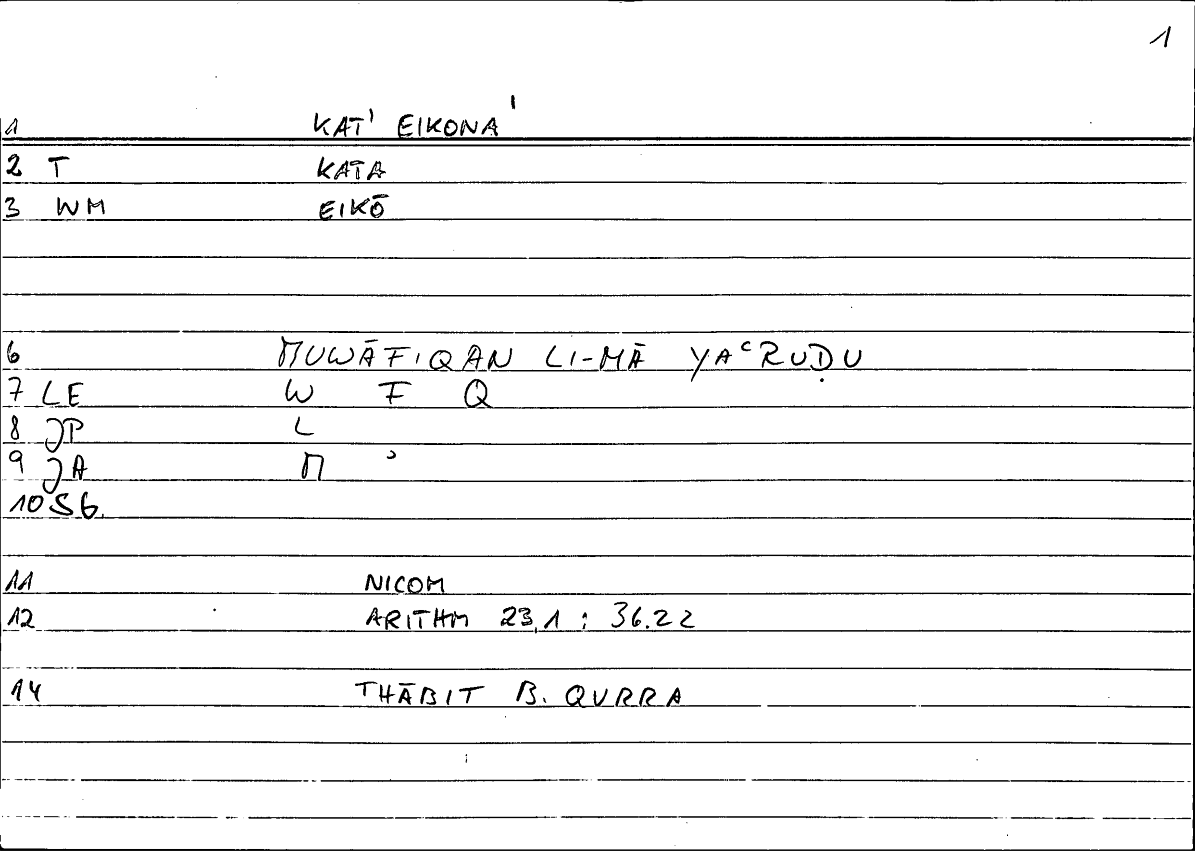 1
1 KAT' EIKONA'
2 T KATA
3 WM EIKŌ
6 MUWĀFIQAN LI-MĀ YAʿRUḌU
7 LE W F Q
8 JP L
9 JA M ʾ
10 S6.
11 NICOM
12 ARITHM 23,1 : 36.22
14 THĀBIT B. QURRA